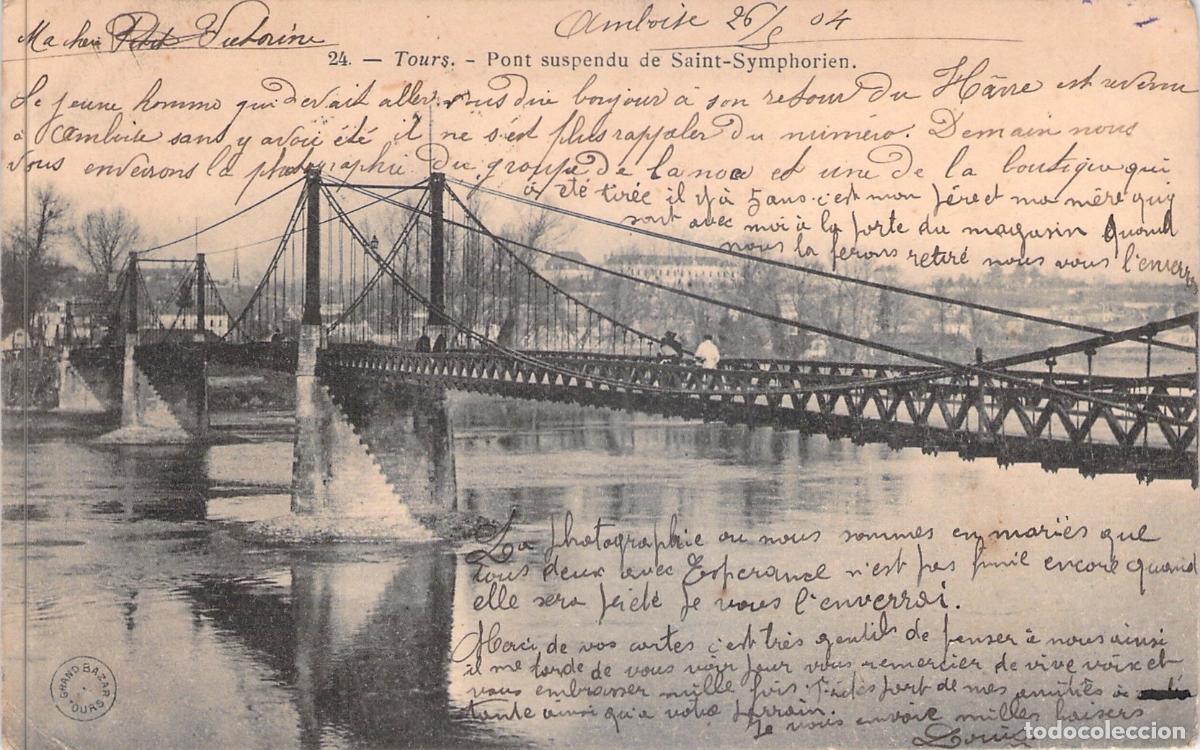 Amboise 26/5 04
Ma chère Petite Victorine
24. — Tours. - Pont suspendu de Saint-Symphorien.
Le jeune homme qui devait aller vous dire bonjour à son retour du Hâvre est revenu
à Amboise sans y avoir été il ne s'est plus rappeler du numéro. Demain nous
vous enverrons la photographie du groupe de la noce et une de la boutique qui
a été tirée il y à 5 ans c'est mon père et ma mère qui
sont avec moi à la porte du magasin Quand
nous la ferons retiré nous vous l'enverr
La photographie ou nous sommes en mariés que
tous deux avec Esperance n'est pas fini encore quand
elle sera je vous l'enverrai.
Merci de vos cartes c'est très gentils de penser à nous ainsi
il me tarde de vous voir pour vous remercier de vive voix et
vous embrasser mille fois. part de mes amitiés à
tante ainsi qu'a votre
Je vous envoie milles baisers
Louise
GRAND BAZAR
TOURS
todocoleccion.net